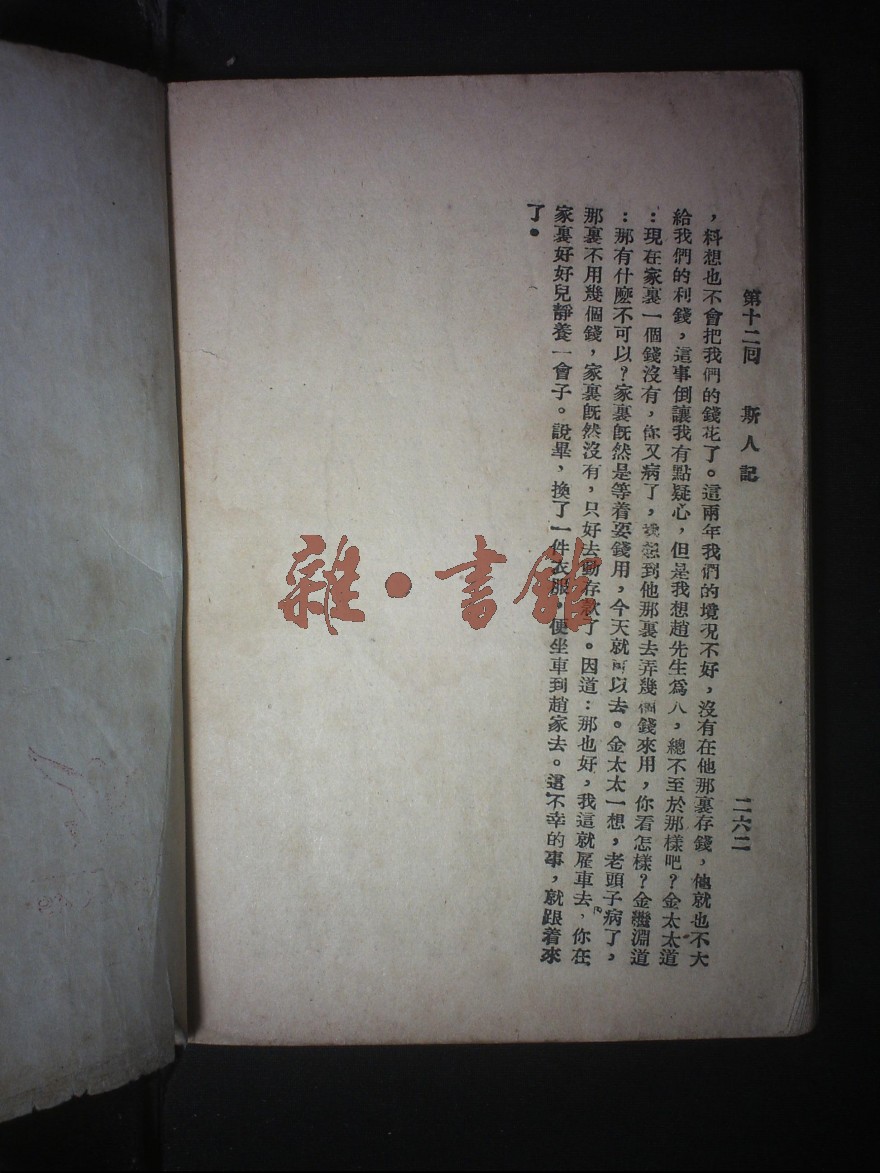 第十二回　斯人記　二六二
，料想也不會把我們的錢花了。這兩年我們的境況不好，沒有在他那裏存錢，他就也不大
給我們的利錢，這事倒讓我有點疑心，但是我想趙先生爲人，總不至於那樣吧？金太太道
：現在家裏一個錢沒有，你又病了，我想到他那裏去弄幾個錢來用，你看怎樣？金繼淵道
：那有什麽不可以？家裏旣然是等着要錢用，今天就可以去。金太太一想，老頭子病了，
那裏不用幾個錢，家裏旣然沒有，只好去動存款了。因道：那也好，我這就雇車去，你在
家裏好好兒靜養一會子。說畢，換了一件衣服，便坐車到趙家去。這不幸的事，就跟着來
了。
雜·書館